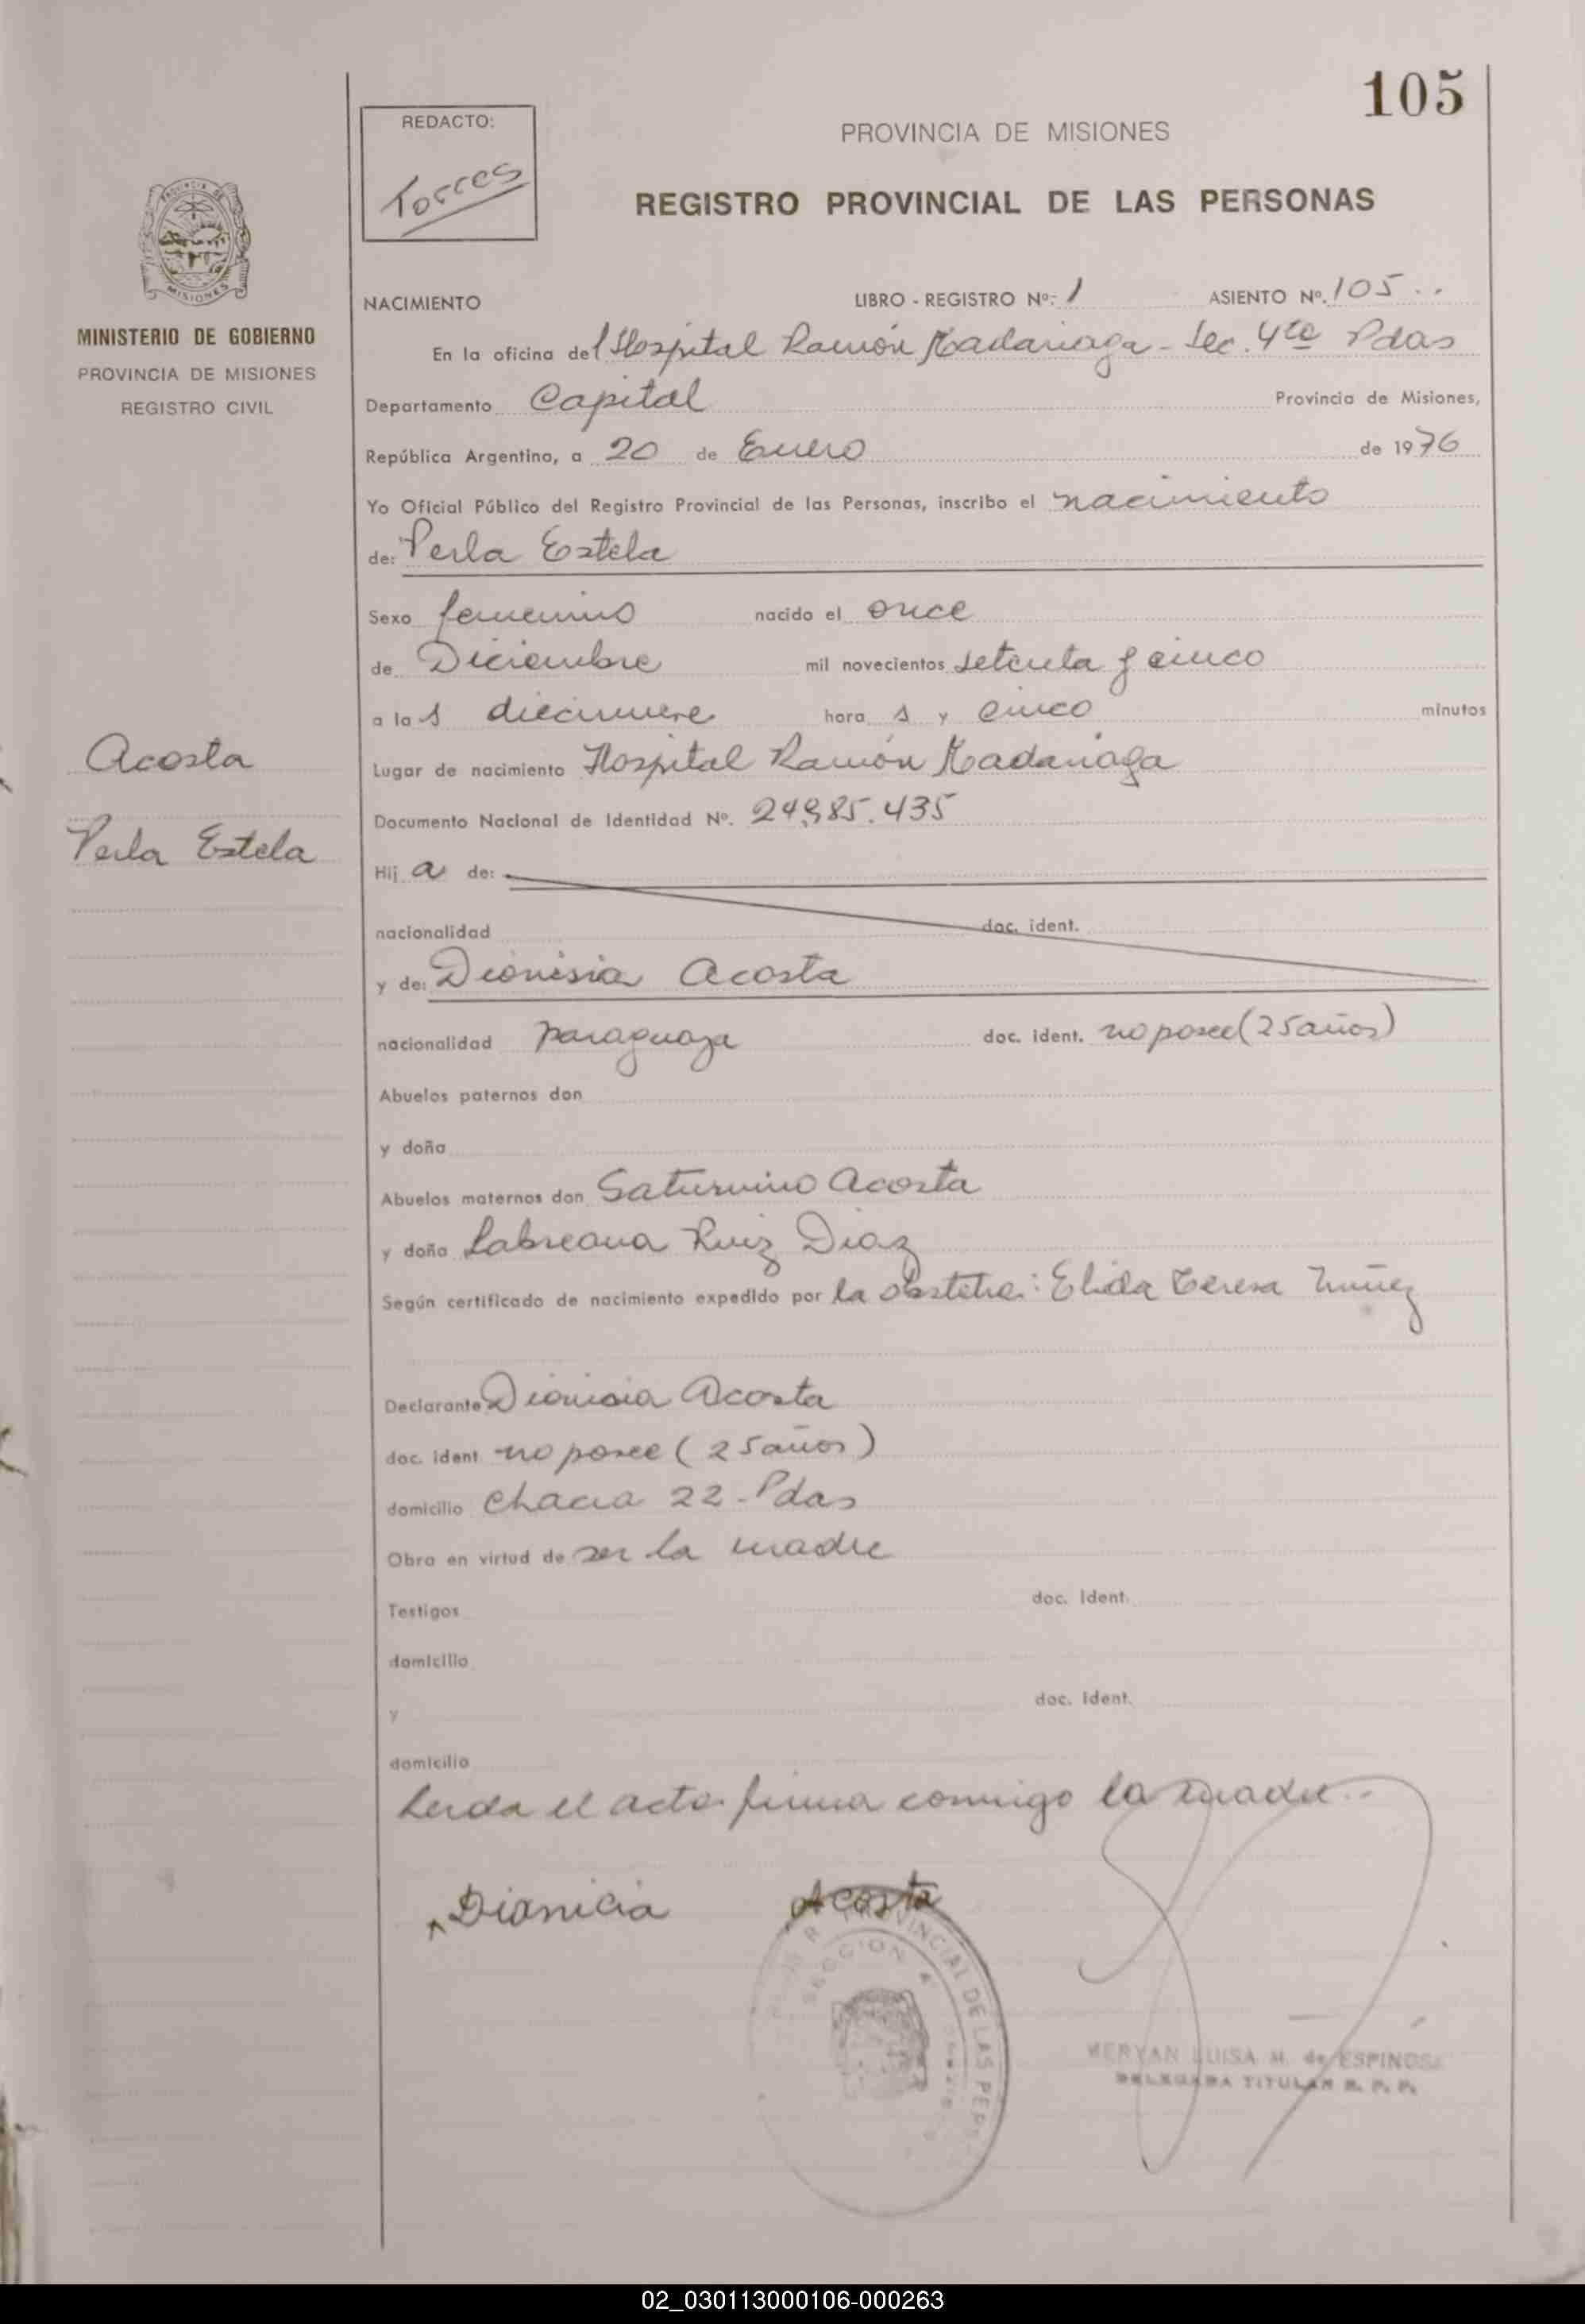 105
REDACTO:
Torres
PROVINCIA DE MISIONES
REGISTRO PROVINCIAL DE LAS PERSONAS
MISIONES
MINISTERIO DE GOBIERNO
PROVINCIA DE MISIONES
REGISTRO CIVIL
NACIMIENTO LIBRO - REGISTRO Nº: 1 ASIENTO Nº. 105..
En la oficina del Hospital Ramón Madariaga - Sec. 4ta Pdas
Departamento Capital Provincia de Misiones,
República Argentina, a 20 de Enero de 1976
Yo Oficial Público del Registro Provincial de las Personas, inscribo el nacimiento
de: Perla Estela
Sexo femenino nacido el once
de Diciembre mil novecientos setenta y cinco
a las diecinueve hora s y cinco minutos
Acosta
Lugar de nacimiento Hospital Ramón Madariaga
Documento Nacional de Identidad Nº. 24.985.435
Perla Estela
Hij a de:
nacionalidad doc. ident.
y de: Dionisia Acosta
nacionalidad paraguaya doc. ident. no posee (25 años)
Abuelos paternos don
y doña
Abuelos maternos don Saturnino Acosta
y doña Ruiz Diaz
Según certificado de nacimiento expedido por la obstetra: Elida Teresa Nuñez
Declarante Dionisia Acosta
doc. ident. no posee (25 años)
domicilio Chacra 22 - Pdas
Obra en virtud de ser la madre
Testigos doc. Ident.
domicilio
y doc. Ident.
domicilio
Leida el acta firma conmigo la madre..
Dionicia Acosta
PROVINCIAL DE LAS PERS
SECCION 4
MERYAN LUISA M. de ESPINOSA
DELEGADA TITULAR R. P. P.
02_030113000106-000263